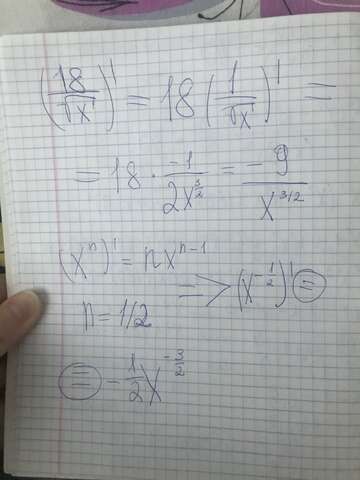 (18/√x)' = 18(1/√x)' =
= 18 · -1/2x^(3/2) = -9/x^(3/2)
(xⁿ)' = nx^(n-1)
n = 1/2
=> (x^(-1/2))' =
= -1/2 x^(-3/2)